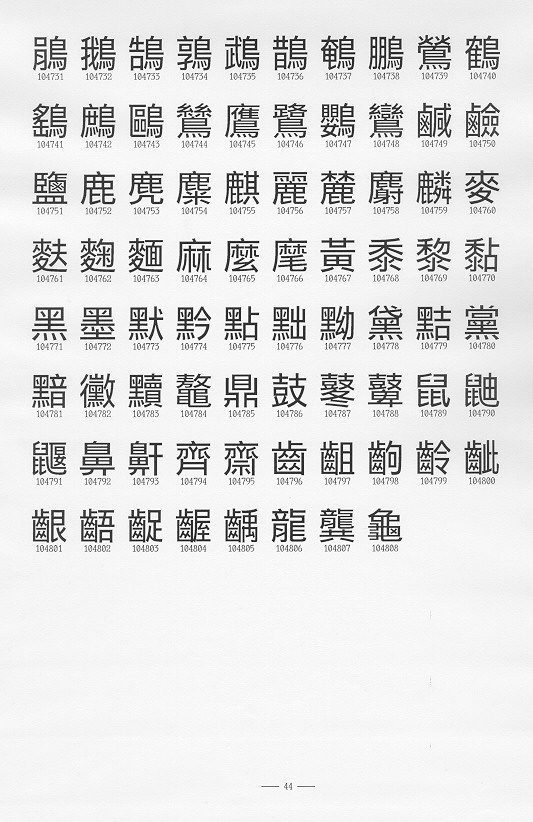 鵑 鵝 鵠 鶉 鵡 鵲 鵪 鵬 鶯 鶴
104731 104732 104733 104734 104735 104736 104737 104738 104739 104740
鷂 鷓 鷗 鷥 鷹 鷺 鸚 鸞 鹹 鹼
104741 104742 104743 104744 104745 104746 104747 104748 104749 104750
鹽 鹿 麂 麋 麒 麗 麓 麝 麟 麥
104751 104752 104753 104754 104755 104756 104757 104758 104759 104760
麩 麴 麵 麻 麼 麾 黃 黍 黎 黏
104761 104762 104763 104764 104765 104766 104767 104768 104769 104770
黑 墨 默 黔 點 黜 黝 黛 黠 黨
104771 104772 104773 104774 104775 104776 104777 104778 104779 104780
黯 黴 黷 鼇 鼎 鼓 鼕 鼙 鼠 鼬
104781 104782 104783 104784 104785 104786 104787 104788 104789 104790
鼴 鼻 鼾 齊 齋 齒 齟 齣 齡 齜
104791 104792 104793 104794 104795 104796 104797 104798 104799 104800
齦 齬 齪 齷 齲 龍 龔 龜
104801 104802 104803 104804 104805 104806 104807 104808
— 44 —